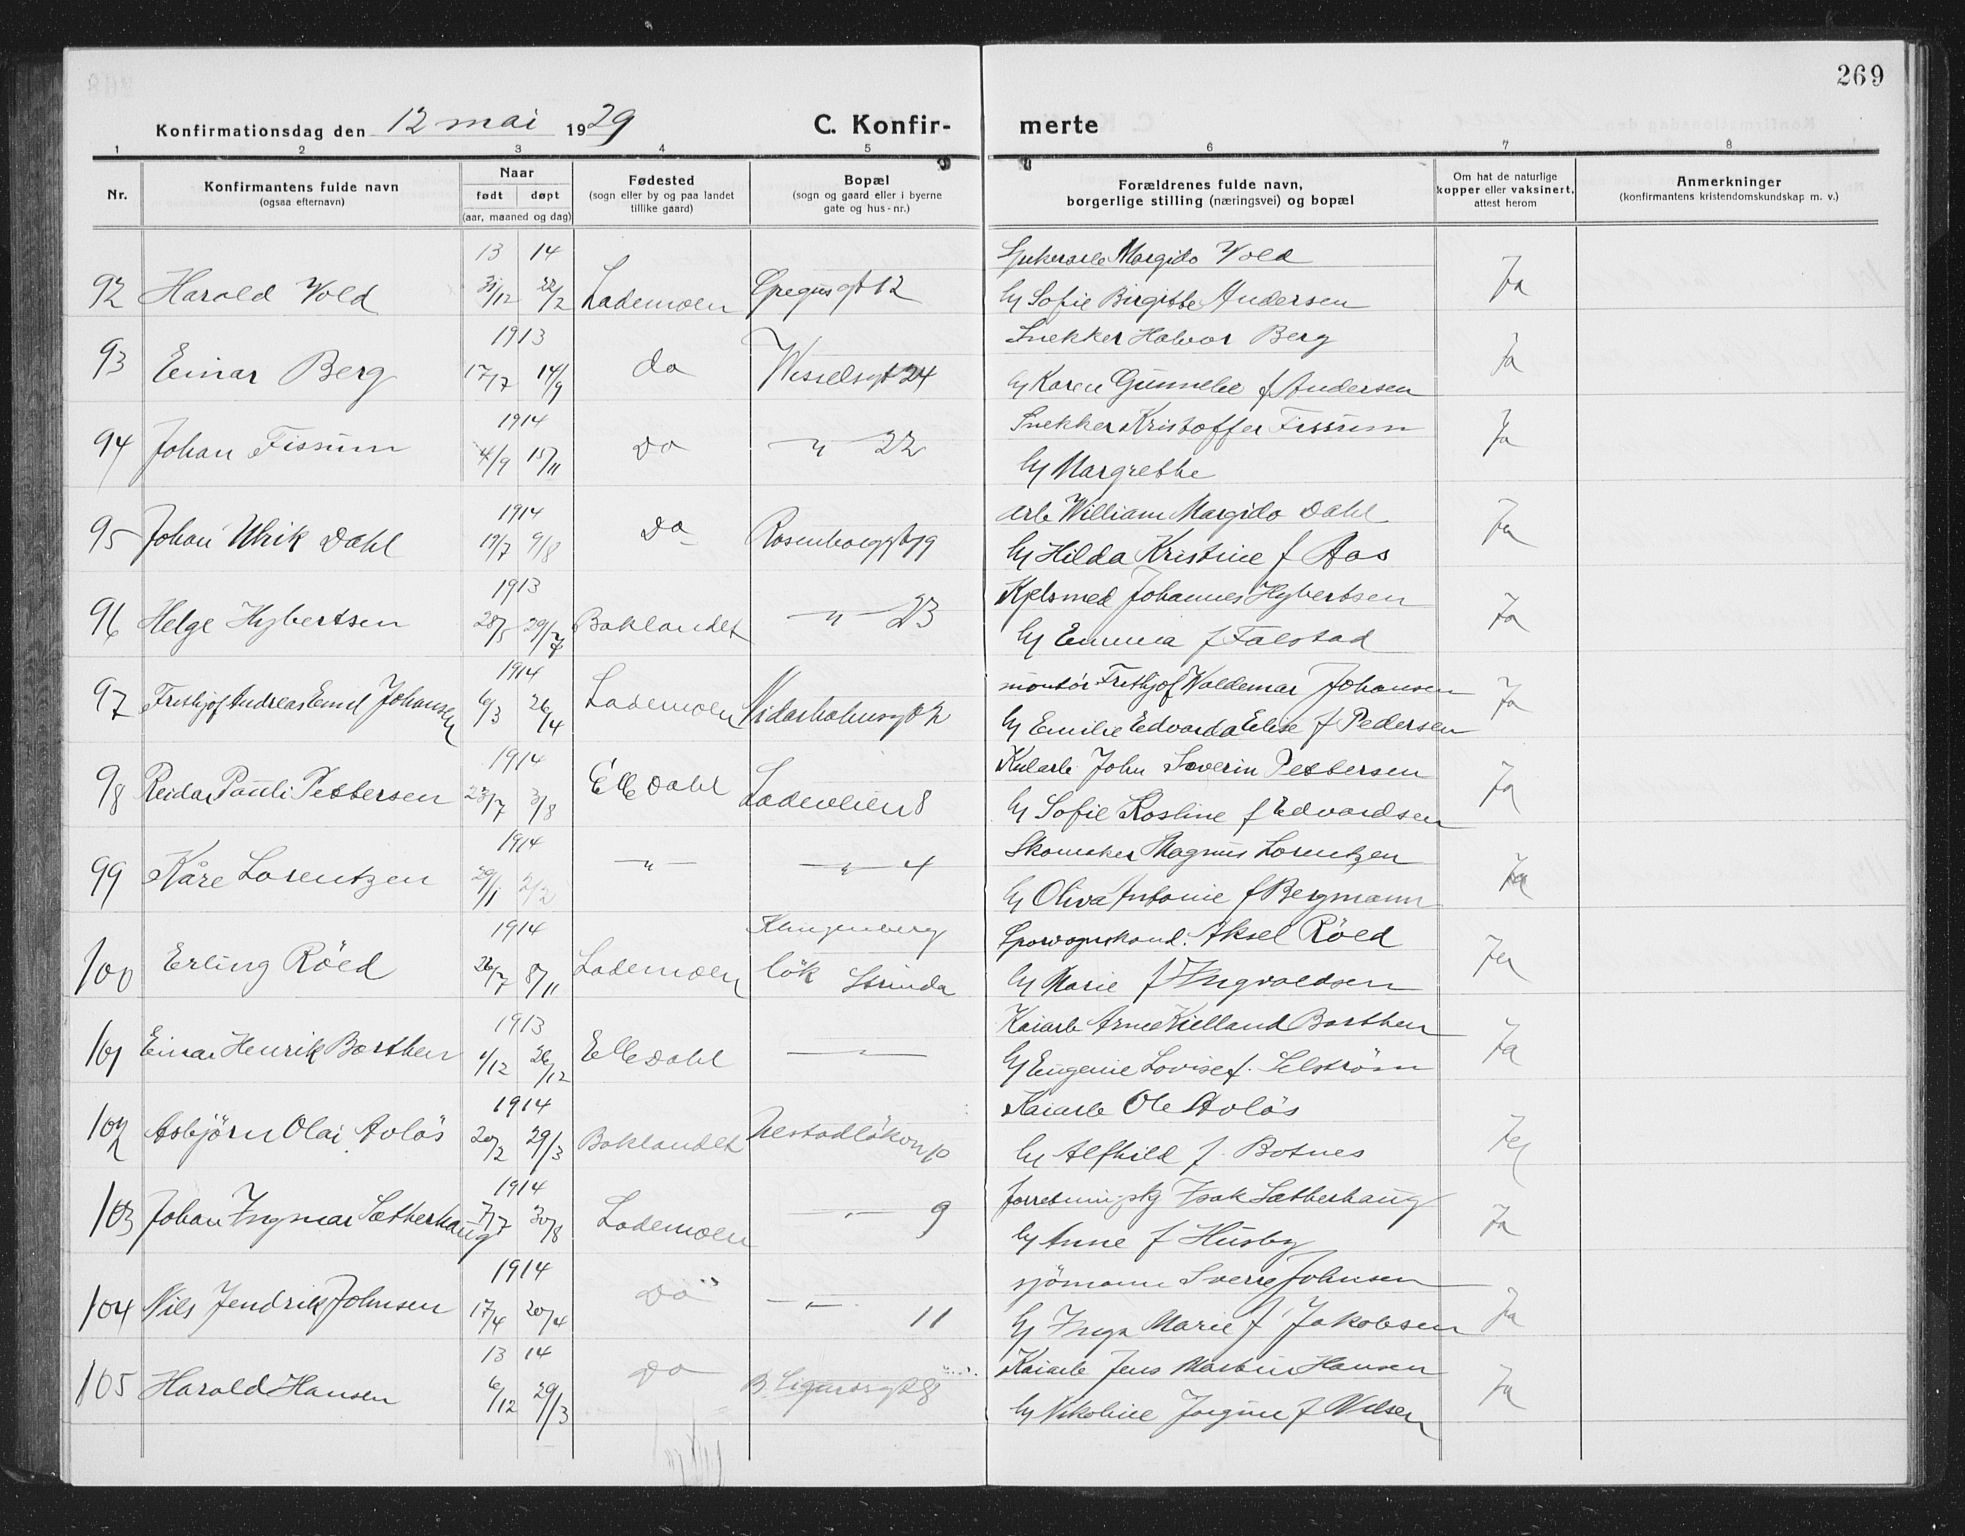 269
Konfirmationsdag den 12 mai 1929
C. Konfir- merte
1 2 3 4 5 6 7 8
Nr.
Konfirmantens fulde navn
(ogsaa efternavn)
Naar
født døpt
(aar, maaned og dag)
Fødested
(sogn eller by og paa landet
tillike gaard)
Bopæl
(sogn og gaard eller i byerne
gate og hus-nr.)
Forældrenes fulde navn,
borgerlige stilling (næringsvei) og bopæl
Om hat de naturlige
kopper eller vaksinert,
attest herom
Anmerkninger
(konfirmantens kristendomskundskap m. v.)
13 14 Margido Vold
92 Harald Vold 31/12 22/2 Lademoen 12 Hj Sofie Birgitte Andersen Ja
1913 Snekker Halvor Berg
93 Einar Berg 17/7 14/9 do Wesselsgt 24 Hj Karen Gunnelie f Andersen Ja
1914 Snekker Kristoffer Fissum
94 Johan Fissum 4/9 15/11 Do " 22 Hj Margrethe Ja
1914 Arb William Margido Dahl
95 Johan Ulrik Dahl 19/7 9/8 Do Rosenborggt 19 Hj Hilda Kristine f Aas Ja
1913 Kjelsmed Johannes Hybertsen
96 Helge Hybertsen 28/5 29/7 Baklandet " 23 Hj Emma f Falstad Ja
1914 montør Frithjof Waldemar Johansen
97 Frithjof Andreas Emil Johansen 6/3 26/4 Lademoen Nidarholmsgt 2 Hj Emilie Edvarda Elise f Pedersen Ja
1914 Kularb John Severin Pettersen
98 Reidar Pauli Pettersen 23/7 3/8 E C Dahl Ladeveien 8 Hj Sofie Rosline f Edvardsen Ja
1914 Skomaker Magnus Lorentzen
99 Kåre Lorentzen 29/1 2/2 " " 4 Hj Oliva Antonie f Bergmann Ja
1914 Klingenberg Sporvognskond. Aksel Röed
100 Erling Röed 26/7 8/11 Lademoen lök Strinda Hj Marie f Ingvaldsen Ja
1913 Kaiarb Arne Kielland Barthen
101 Einar Henrik Barthen 4/12 26/12 E C Dahl " Hj Eugenie Lovise f. Selström Ja
1914 Kaiarb Ole Avløs
102 Asbjörn Olai Avløs 20/2 29/3 Baklandet 10 Hj Alfhild f. Botnes Ja
1914 Isak Sætherhaug
103 Johan Ingmar Sætherhaug 7/7 30/8 Lademoen " 9 Hj Anne f Husby Ja
1914 sjömann Sverre Johnsen
104 Nils Jendrik Johnsen 17/4 20/4 Do " 11 Hj Inga Marie f Jakobsen Ja
13 14 Kaiarb Jens Martin Hansen
105 Harald Hansen 6/12 29/3 Do 8 Hj Nikoline Jørgine f Nilsen Ja